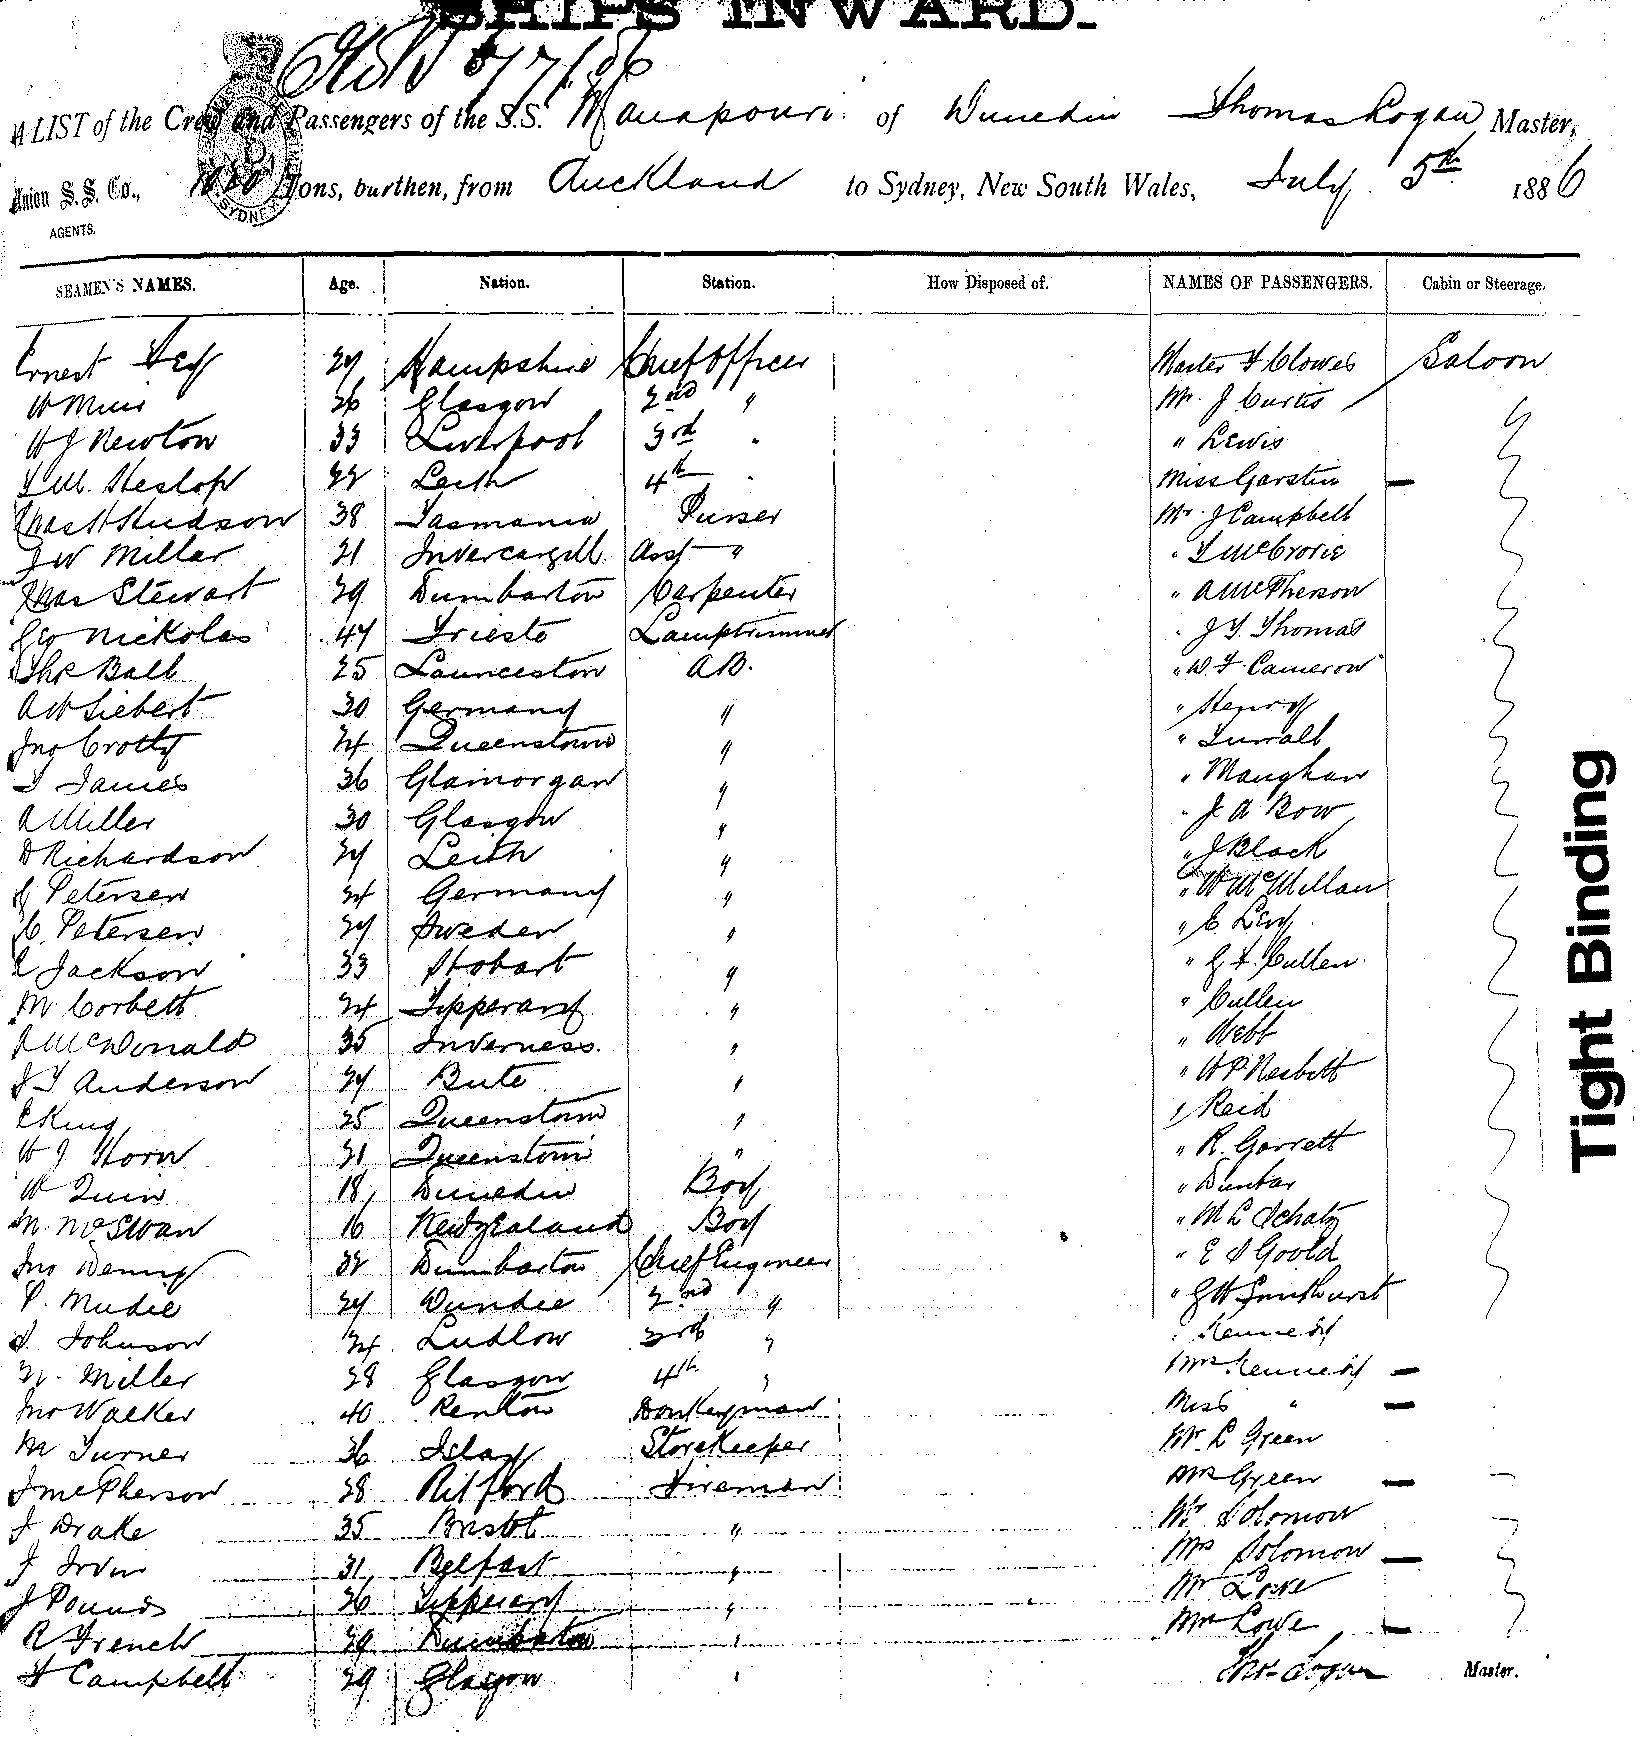 SHIPS INWARD.
A LIST of the Crew and Passengers of the S.S. Manapouri of Dunedin Thomas Logan Master,
Union S. S. Co., Tons, burthen, from Auckland to Sydney, New South Wales, July 5th 1886
AGENTS.
SYDNEY
SEAMEN'S NAMES. Age. Nation. Station. How Disposed of. NAMES OF PASSENGERS. Cabin or Steerage.
Ernest 29 Hampshire Chief Officer Master F Clowes Saloon
W Muir 26 Glasgow 2nd " Mr. J Curtis "
W J Newton 33 Liverpool 3rd " " Lewis "
T M. Heslop 22 Leith 4th " Miss Garstin — "
Chas H Hudson 38 Tasmania Purser Mr J Campbell "
J W Millar 21 Invercargill Asst " " T McCrorie "
Chas Stewart 29 Dumbarton Carpenter " A McPherson "
Geo Nickolas 47 Trieste Lamptrimmer " J T Thomas "
Thos Ball 25 Launceston AB. " W F Cameron "
A W Siebert 30 Germany " " Henry "
Jno Crotty 24 Queenstown " " "
T James 36 Glamorgan " " Maughan "
A Miller 30 Glasgow " " J A Bow "
D Richardson 29 Leith " " J Black "
J Petersen 24 Germany " " W McMillan "
C. Petersen 29 Sweden " " C Levy "
Jackson 33 Hobart " " G F. Cullen "
M Corbett 24 Tipperary " " Cullen "
A McDonald 35 Inverness " " Webb "
J T Anderson 29 Bute " " W P Nesbett "
C King 25 Queenstown " " Reid "
W J Horn 21 Queenstown " " R. Garrett "
W Quin 18 Dunedin Boy " Dunbar "
M. McSwan 16 New Zealand Boy " M L Schatz "
Jno Denny 32 Dumbarton Chief Engineer " E S Goold "
P. Mudie 29 Dundee 2nd " " G W "
S. Johnson 24 Ludlow 3rd " " Kennedy
Miller 28 Glasgow 4th " Mrs Kennedy —
Jno Walker 40 Renton Donkeyman Miss " —
M Turner 36 Islay Storekeeper Mr. L Green
J McPherson 28 Fireman Mrs Green —
J Drake 35 Bristol " Mr Solomon "
J Irvin 31 Belfast " Mrs Solomon — "
J Pounds 26 Tipperary " Mr Lowe "
R French 29 Dumbarton " Mrs Lowe — "
Campbell 29 Glasgow " Thos Logan Master.
Tight Binding